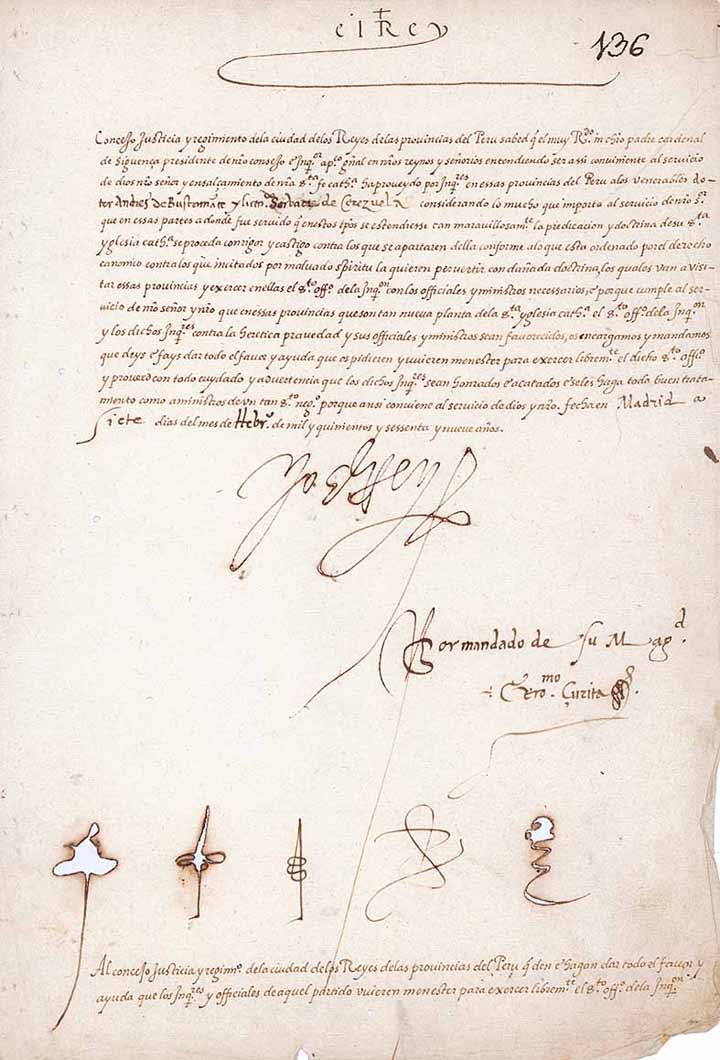 el Rey
136
Concejo Justicia y regimiento dela ciudad delos Reyes delas provincias del Peru sabed q̃ el muy R.do in chr̃o padre cardenal
de siguença presidente de nr̃o consejo e Inq.or ap.co gñal en nr̃os reynos y señorios entendiendo ser assi conviniente al servicio
de dios nr̃o señor y ensalçamiento de nr̃a s.ta fe cath.ca ha proveydo por Inq.res en essas provincias del Peru alos venerables do-
tor Andres de Bustamãte y licen.do Servan de Cerezuela considerando lo mucho que importa al servicio de nr̃o s.or
que en essas partes a donde fue servido q̃ en estos tp̃os se estendiesse tan maravillosam.te la predicacion y doctrina de su s.ta
yglesia cath.ca se proceda corrigor y castigo contra los que se apartaren della conforme alo que esta ordenado por el derecho
canonico contra los que incitados por malvado spiritu la quieren pervertir con dañada doctrina, los quales van a visi-
tar essas provincias y exercer en ellas el s.to off.o dela Inq.on con los officiales y ministros necessarios, e porque cumple al ser-
vicio de nr̃o señor y nr̃o que en essas provincias que son tan nueva planta dela s.ta yglesia cath.ca el s.to off.o dela Inq.on
y los dichos Inq.res contra la heretica pravedad y sus officiales y ministros sean favorecidos, os encargamos y mandamos
que deys e fays dar todo el favor y ayuda que os pidieren y uvieren menester para exercer librem.te el dicho s.to off.o
y proveed con todo cuydado y advertencia que los dichos Inq.res sean honrados e acatados e se les haga todo buen trata-
miento como a ministros de un tan s.to neg.o porque ansi conviene al servicio de dios y nr̃o. fecha en Madrid a
siete dias del mes de Hebr.o de mil y quinientos y sessenta y nueve años.
Yo el Rey
Por mandado de su Mag.d
Gero.mo Çurita
Al concejo Justicia y regim.o dela ciudad de los Reyes delas provincias del Peru q̃ den e hagan dar todo el favor y
ayuda que los Inq.res y officiales de aquel partido uvieren menester para exercer librem.te el s.to off.o dela Inq.on